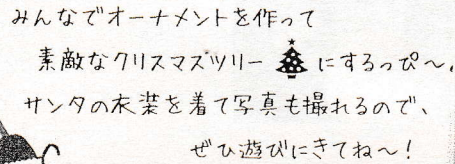 みんなでオーナメントを作って
素敵なクリスマスツリー🎄にするっぴ〜。
サンタの衣装を着て写真も撮れるので、
ぜひ遊びにきてね〜!